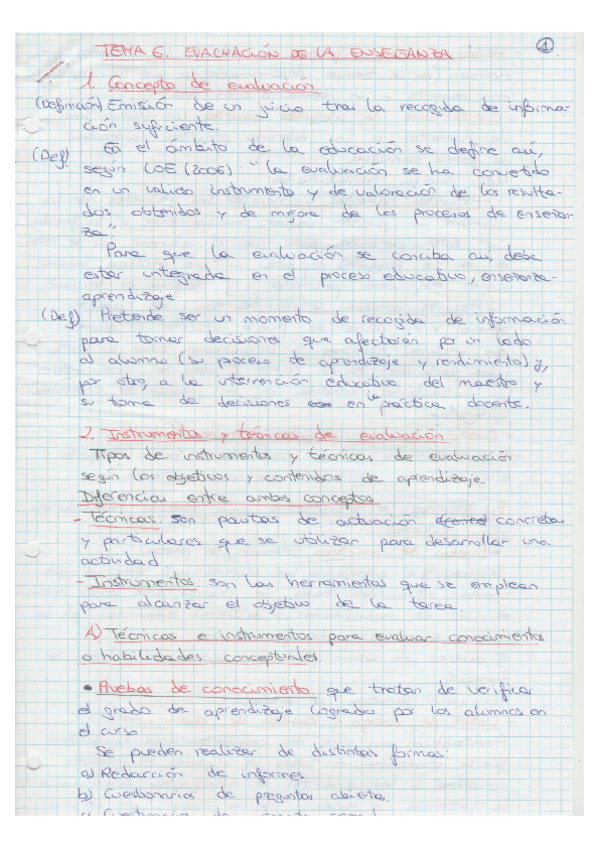 1
TEMA 6. EVALUACIÓN DE LA ENSEÑANZA
1. Concepto de evaluación
(Definición) Emisión de un juicio tras la recogida de informa-
ción suficiente.
En el ámbito de la educación se define así,
(Def) según LOE (2006): "La evaluación se ha convetido
en un valioso instrumento y de valoración de los resulta-
dos obtenidos y de mejora de los procesos de enseñan-
za".
Para que la evaluación se conciba así, debe
estar integrada en el proceso educativo, enseñanza-
aprendizaje
(Def) Pretende ser un momento de recogida de información
para tomar decisiones que afectarán por un lado
al alumno (su proceso de aprendizaje y rendimiento) y,
por otro, a la intervención educativa del maestro y
su toma de decisiones en la práctica docente.
2. Instrumentos y técnicas de evaluación
Tipos de instrumentos y técnicas de evaluación
según los objetivos y contenidos de aprendizaje.
Diferencias entre ambos conceptos
- Técnicas: son pautas de actuación concretas
y particulares que se utilizan para desarrollar una
actividad.
- Instrumentos: son las herramientas que se emplean
para alcanzar el objetivo de la tarea.
A) Técnicas e instrumentos para evaluar conocimientos
o habilidades conceptuales.
• Pruebas de conocimiento que tratan de verificar
el grado de aprendizaje logrado por los alumnos en
el curso
Se pueden realizar de distintas formas:
a) Redacción de informes
b) Cuestionarios de preguntas abiertas.